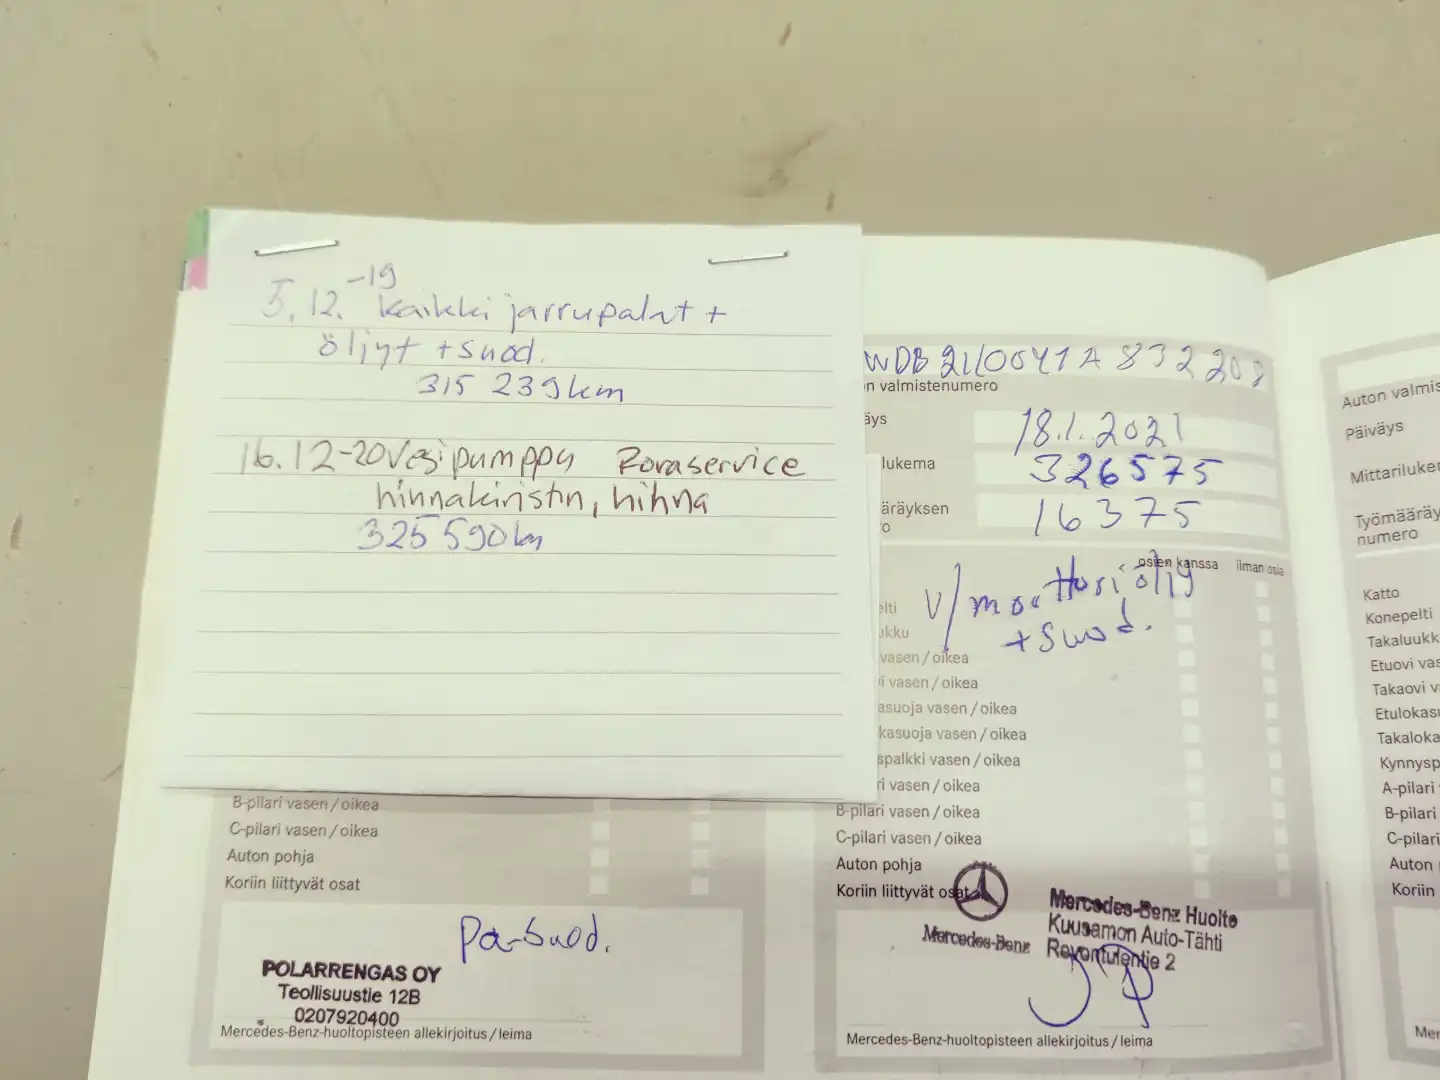 5.12.-19 Kaikki jarrupalat +
öljyt + suod.
315 239 km
16.12-20 Vesipumppu Rovaservice
hinnakiristin, hihna
325 590 km
B-pilari vasen / oikea
C-pilari vasen / oikea
Auton pohja
Koriin liittyvät osat
Pa-Suod.
POLARRENGAS OY
Teollisuustie 12B
0207920400
Mercedes-Benz-huoltopisteen allekirjoitus / leima
n valmistenumero
äys
18.1.2021
lukema
326575
äräyksen
o
16375
osien kanssa
ilman osia
elti
V/moottoriöljy
+ Suod.
ukku
vasen / oikea
i vasen / oikea
asuoja vasen / oikea
kasuoja vasen / oikea
spalkki vasen / oikea
ri vasen / oikea
B-pilari vasen / oikea
C-pilari vasen / oikea
Auton pohja
Koriin liittyvät osat
Mercedes-Benz
Mercedes-Benz Huolto
Kuusamon Auto-Tähti
Revontulentie 2
Mercedes-Benz-huoltopisteen allekirjoitus / leima
Auton valmis
Päiväys
Mittariluke
Työmääräy
numero
Katto
Konepelti
Takaluukk
Etuovi vas
Takaovi v
Etulokas
Takaloka
Kynnysp
A-pilari
B-pilari
C-pilari
Auton
Koriin
Mer